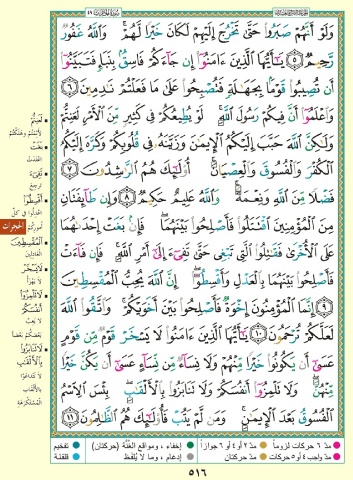 سورة الحجرات ٤٩
وَلَوْ أَنَّهُمْ صَبَرُوا۟ حَتَّىٰ تَخْرُجَ إِلَيْهِمْ لَكَانَ خَيْرًا لَّهُمْ ۚ وَٱللَّهُ غَفُورٌ
رَّحِيمٌ ٥ يَـٰٓأَيُّهَا ٱلَّذِينَ ءَامَنُوٓا۟ إِن جَآءَكُمْ فَاسِقٌۢ بِنَبَإٍ فَتَبَيَّنُوٓا۟
أَن تُصِيبُوا۟ قَوْمًۢا بِجَهَـٰلَةٍ فَتُصْبِحُوا۟ عَلَىٰ مَا فَعَلْتُمْ نَـٰدِمِينَ ٦
وَٱعْلَمُوٓا۟ أَنَّ فِيكُمْ رَسُولَ ٱللَّهِ ۚ لَوْ يُطِيعُكُمْ فِى كَثِيرٍ مِّنَ ٱلْأَمْرِ لَعَنِتُّمْ
وَلَـٰكِنَّ ٱللَّهَ حَبَّبَ إِلَيْكُمُ ٱلْإِيمَـٰنَ وَزَيَّنَهُۥ فِى قُلُوبِكُمْ وَكَرَّهَ إِلَيْكُمُ
ٱلْكُفْرَ وَٱلْفُسُوقَ وَٱلْعِصْيَانَ ۚ أُو۟لَـٰٓئِكَ هُمُ ٱلرَّٰشِدُونَ ٧
فَضْلًا مِّنَ ٱللَّهِ وَنِعْمَةً ۚ وَٱللَّهُ عَلِيمٌ حَكِيمٌ ٨ وَإِن طَآئِفَتَانِ
مِنَ ٱلْمُؤْمِنِينَ ٱقْتَتَلُوا۟ فَأَصْلِحُوا۟ بَيْنَهُمَا ۖ فَإِنۢ بَغَتْ إِحْدَىٰهُمَا
عَلَى ٱلْأُخْرَىٰ فَقَـٰتِلُوا۟ ٱلَّتِى تَبْغِى حَتَّىٰ تَفِىٓءَ إِلَىٰٓ أَمْرِ ٱللَّهِ ۚ فَإِن فَآءَتْ
فَأَصْلِحُوا۟ بَيْنَهُمَا بِٱلْعَدْلِ وَأَقْسِطُوٓا۟ ۖ إِنَّ ٱللَّهَ يُحِبُّ ٱلْمُقْسِطِينَ
٩ إِنَّمَا ٱلْمُؤْمِنُونَ إِخْوَةٌ فَأَصْلِحُوا۟ بَيْنَ أَخَوَيْكُمْ ۚ وَٱتَّقُوا۟ ٱللَّهَ
لَعَلَّكُمْ تُرْحَمُونَ ١٠ يَـٰٓأَيُّهَا ٱلَّذِينَ ءَامَنُوا۟ لَا يَسْخَرْ قَوْمٌ مِّن قَوْمٍ
عَسَىٰٓ أَن يَكُونُوا۟ خَيْرًا مِّنْهُمْ وَلَا نِسَآءٌ مِّن نِّسَآءٍ عَسَىٰٓ أَن يَكُنَّ خَيْرًا
مِّنْهُنَّ ۖ وَلَا تَلْمِزُوٓا۟ أَنفُسَكُمْ وَلَا تَنَابَزُوا۟ بِٱلْأَلْقَـٰبِ ۖ بِئْسَ ٱلِٱسْمُ
ٱلْفُسُوقُ بَعْدَ ٱلْإِيمَـٰنِ ۚ وَمَن لَّمْ يَتُبْ فَأُو۟لَـٰٓئِكَ هُمُ ٱلظَّـٰلِمُونَ ١١
لَعَنِتُّمْ
بَغَتْ
اعتدت
تَفِيءَ
ترجع
أَقْسِطُوا
الحجرات
الْمُقْسِطِينَ
العادلين
لَا يَسْخَرْ
لَا تَلْمِزُوا أَنْفُسَكُمْ
لَا تَنَابَزُوا بِالْأَلْقَابِ
مدّ ٦ حركات لزوماً
مدّ ٢ أو ٤ أو ٦ جوازاً
إخفاء، ومواقع الغُنَّة (حركتان)
تفخيم
مدّ واجب ٤ أو ٥ حركات
مدّ حركتان
إدغام، وما لا يُلفظ
قلقلة
٥١٦